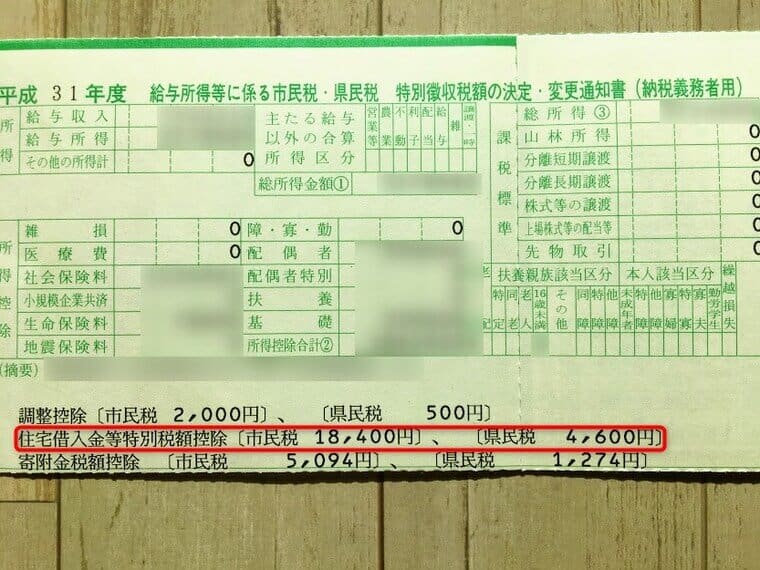 平成 31年度 給与所得等に係る市民税・県民税 特別徴収税額の決定・変更通知書(納税義務者用)
所得
給与収入
給与所得
その他の所得計 0
主たる給与以外の合算所得区分
営業等 農業 不動 利子 配当 給与 雑 譲渡・一時
総所得金額①
課税標準
総所得③
山林所得 0
分離短期譲渡 0
分離長期譲渡 0
株式等の譲渡 0
上場株式等の配当等 0
先物取引 0
所得控除
雑損 0
医療費 0
社会保険料
小規模企業共済
生命保険料
地震保険料
障・寡・勤 0
配偶者
配偶者特別
扶養
基礎
所得控除合計②
扶養親族該当区分 本人該当区分 繰越損失
老配 特定 同老 老人 16歳未満 その他 同障 特障 他障 未成年者 特障 他障 寡婦 特寡 寡夫 勤労学生
(摘要)
調整控除〔市民税 2,000円〕、 〔県民税 500円〕
住宅借入金等特別税額控除〔市民税 18,400円〕、 〔県民税 4,600円〕
寄附金税額控除 〔市民税 5,094円〕、 〔県民税 1,274円〕